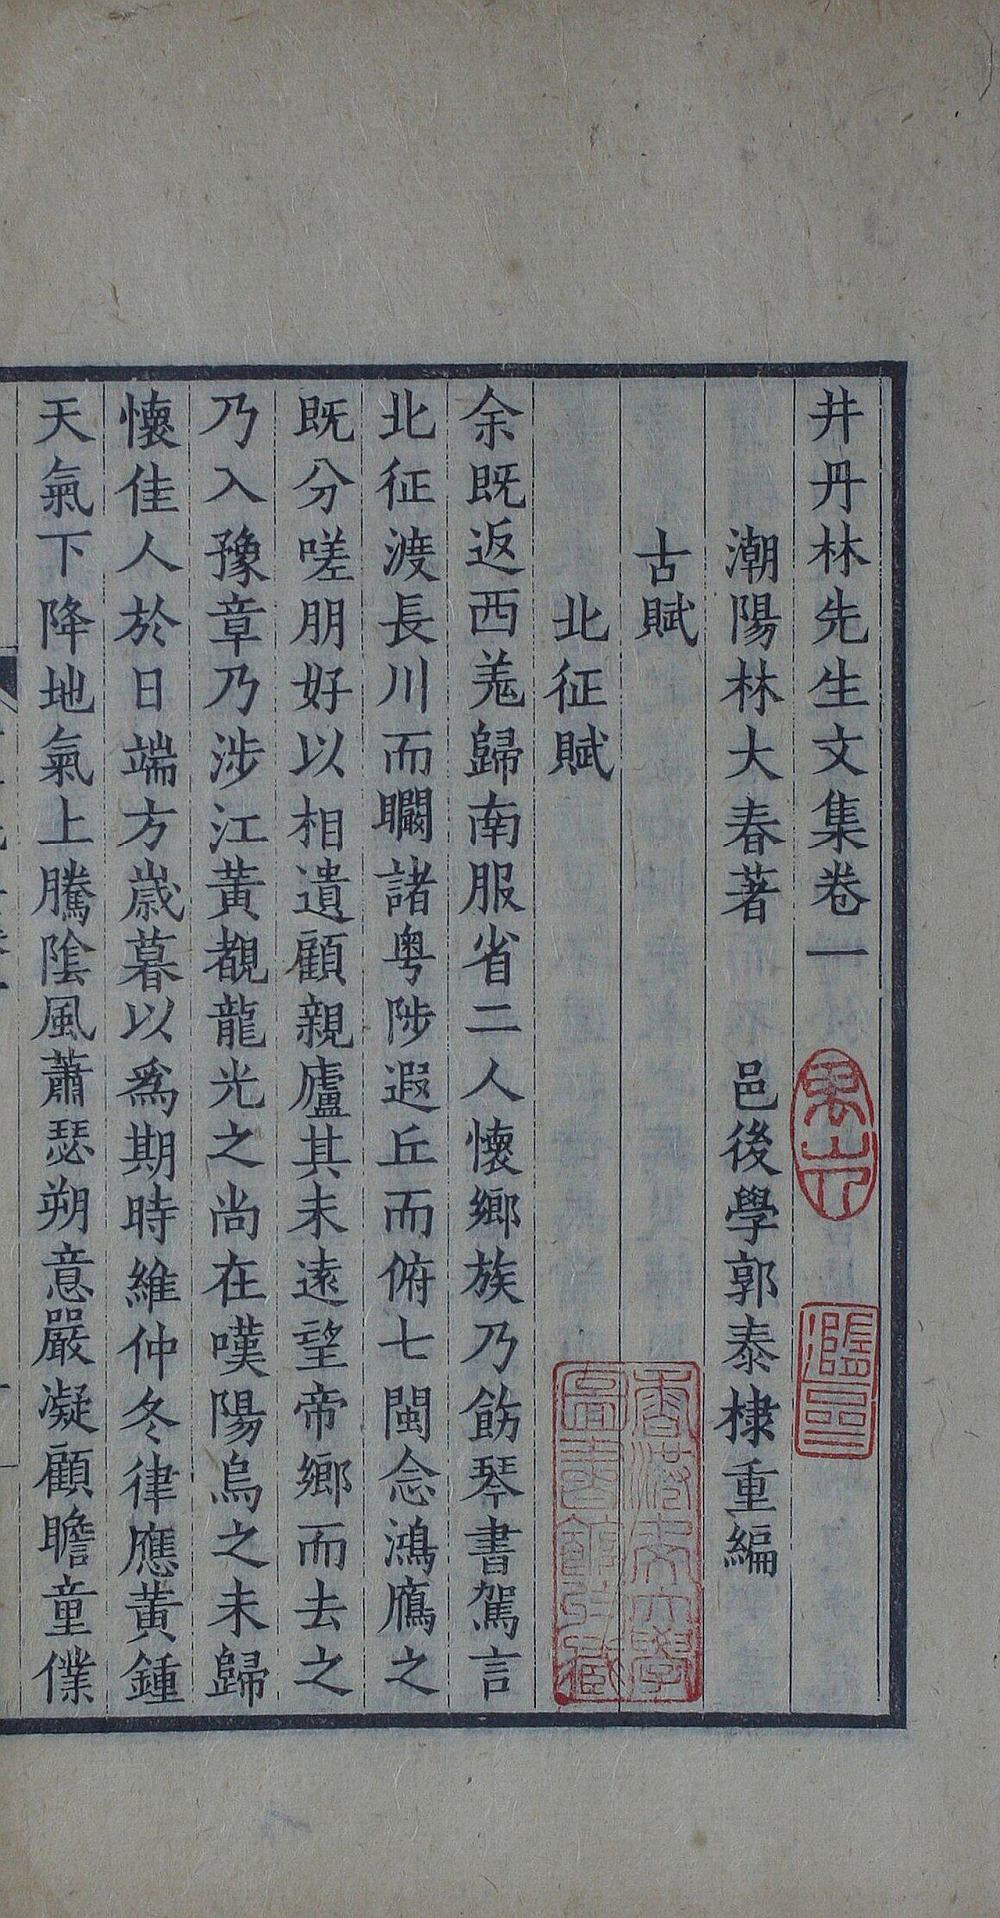 井丹林先生文集卷一
潮陽林大春著 邑後學郭泰棣重編
古賦
北征賦
余既返西羗歸南服省二人懷鄉族乃飭琴書駕言
北征渡長川而瞷諸粤陟遐丘而俯七閩念鴻鴈之
既分嗟朋好以相遺顧親廬其未遠望帝鄉而去之
乃入豫章乃涉江黃覩龍光之尚在嘆陽烏之未歸
懷佳人於日端方歲暮以爲期時維仲冬律應黃鍾
天氣下降地氣上騰陰風蕭瑟朔意嚴凝顧瞻童僕
香港中文大學
圖書館所藏